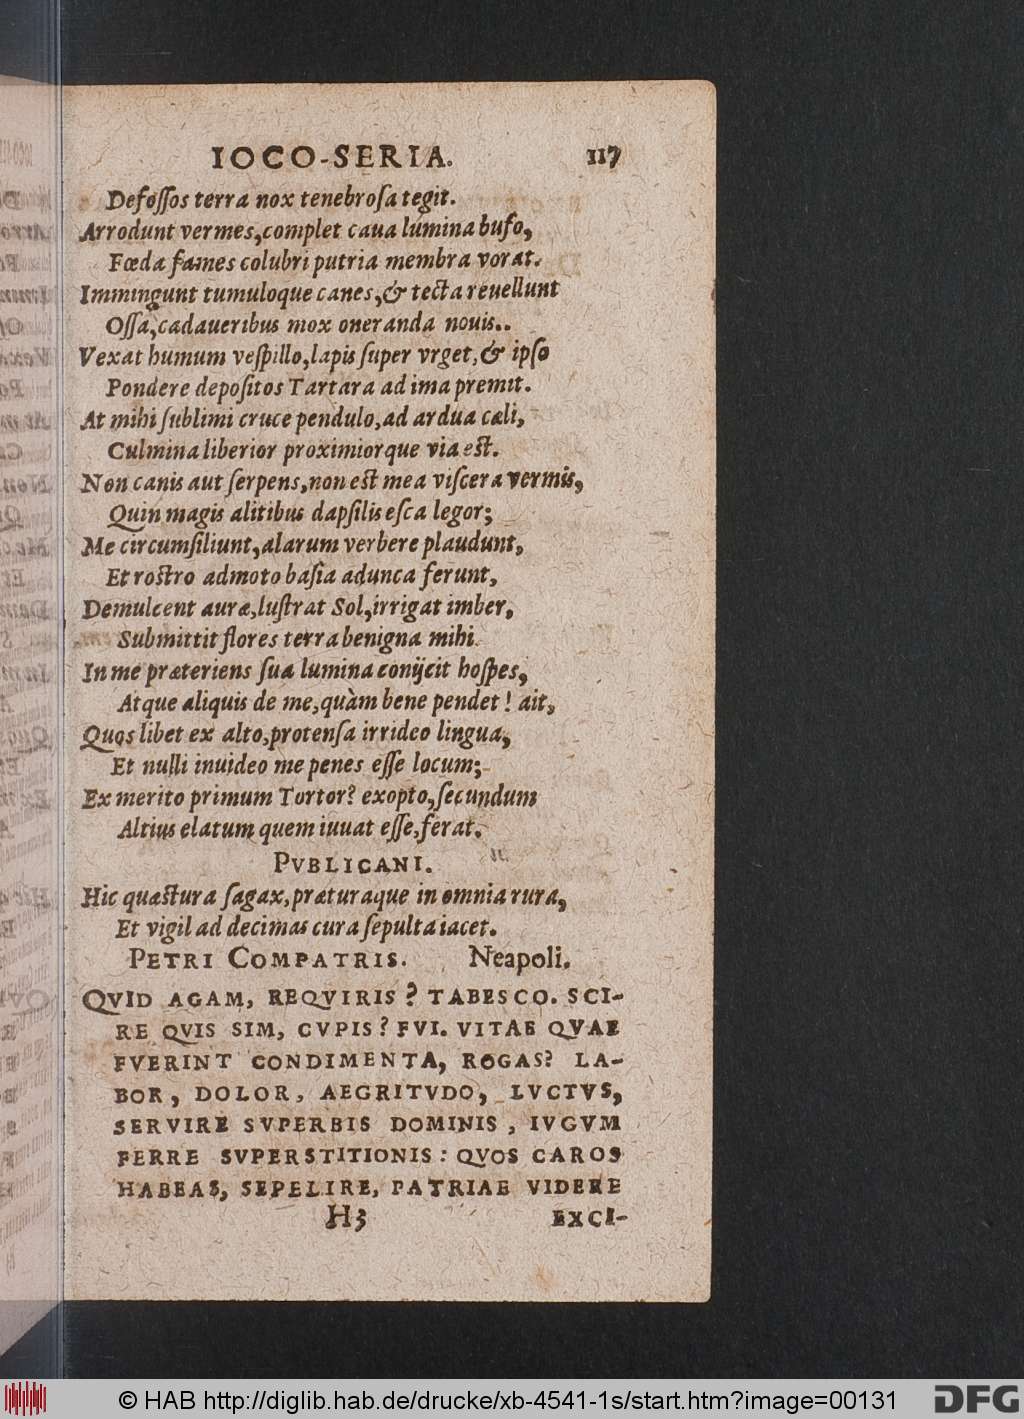 IOCO-SERIA. 117
Defossos terra nox tenebrosa tegit.
Arrodunt vermes, complet caua lumina bufo,
Fœda fames colubri putria membra vorat.
Immingunt tumuloque canes, & tecta reuellunt
Ossa, cadaueribus mox oneranda nouis..
Vexat humum vespillo, lapis super vrget, & ipso
Pondere depositos Tartara ad ima premit.
At mihi sublimi cruce pendulo, ad ardua cæli,
Culmina liberior proximiorque via est.
Non canis aut serpens, non est mea viscera vermis,
Quin magis alitibus dapsilis esca legor;
Me circumsiliunt, alarum verbere plaudunt,
Et rostro admoto basia adunca ferunt,
Demulcent auræ, lustrat Sol, irrigat imber,
Submittit flores terra benigna mihi.
In me præteriens sua lumina conijcit hospes,
Atque aliquis de me, quàm bene pendet! ait,
Quos libet ex alto, protensa irrideo lingua,
Et nulli inuideo me penes esse locum;
Ex merito primum Tortor? exopto, secundum
Altius elatum quem iuuat esse, ferat.
PVBLICANI.
Hic quæstura sagax, præturaque in omnia rura,
Et vigil ad decimas cura sepulta iacet.
PETRI COMPATRIS. Neapoli.
QVID AGAM, REQVIRIS? TABESCO. SCI-
RE QVIS SIM, CVPIS? FVI. VITAE QVAE
FVERINT CONDIMENTA, ROGAS? LA-
BOR, DOLOR, AEGRITVDO, LVCTVS,
SERVIRE SVPERBIS DOMINIS, IVGVM
FERRE SVPERSTITIONIS: QVOS CAROS
HABEAS, SEPELIRE, PATRIAE VIDERE
H3 EXCI-
© HAB http://diglib.hab.de/drucke/xb-4541-1s/start.htm?image=00131
DFG